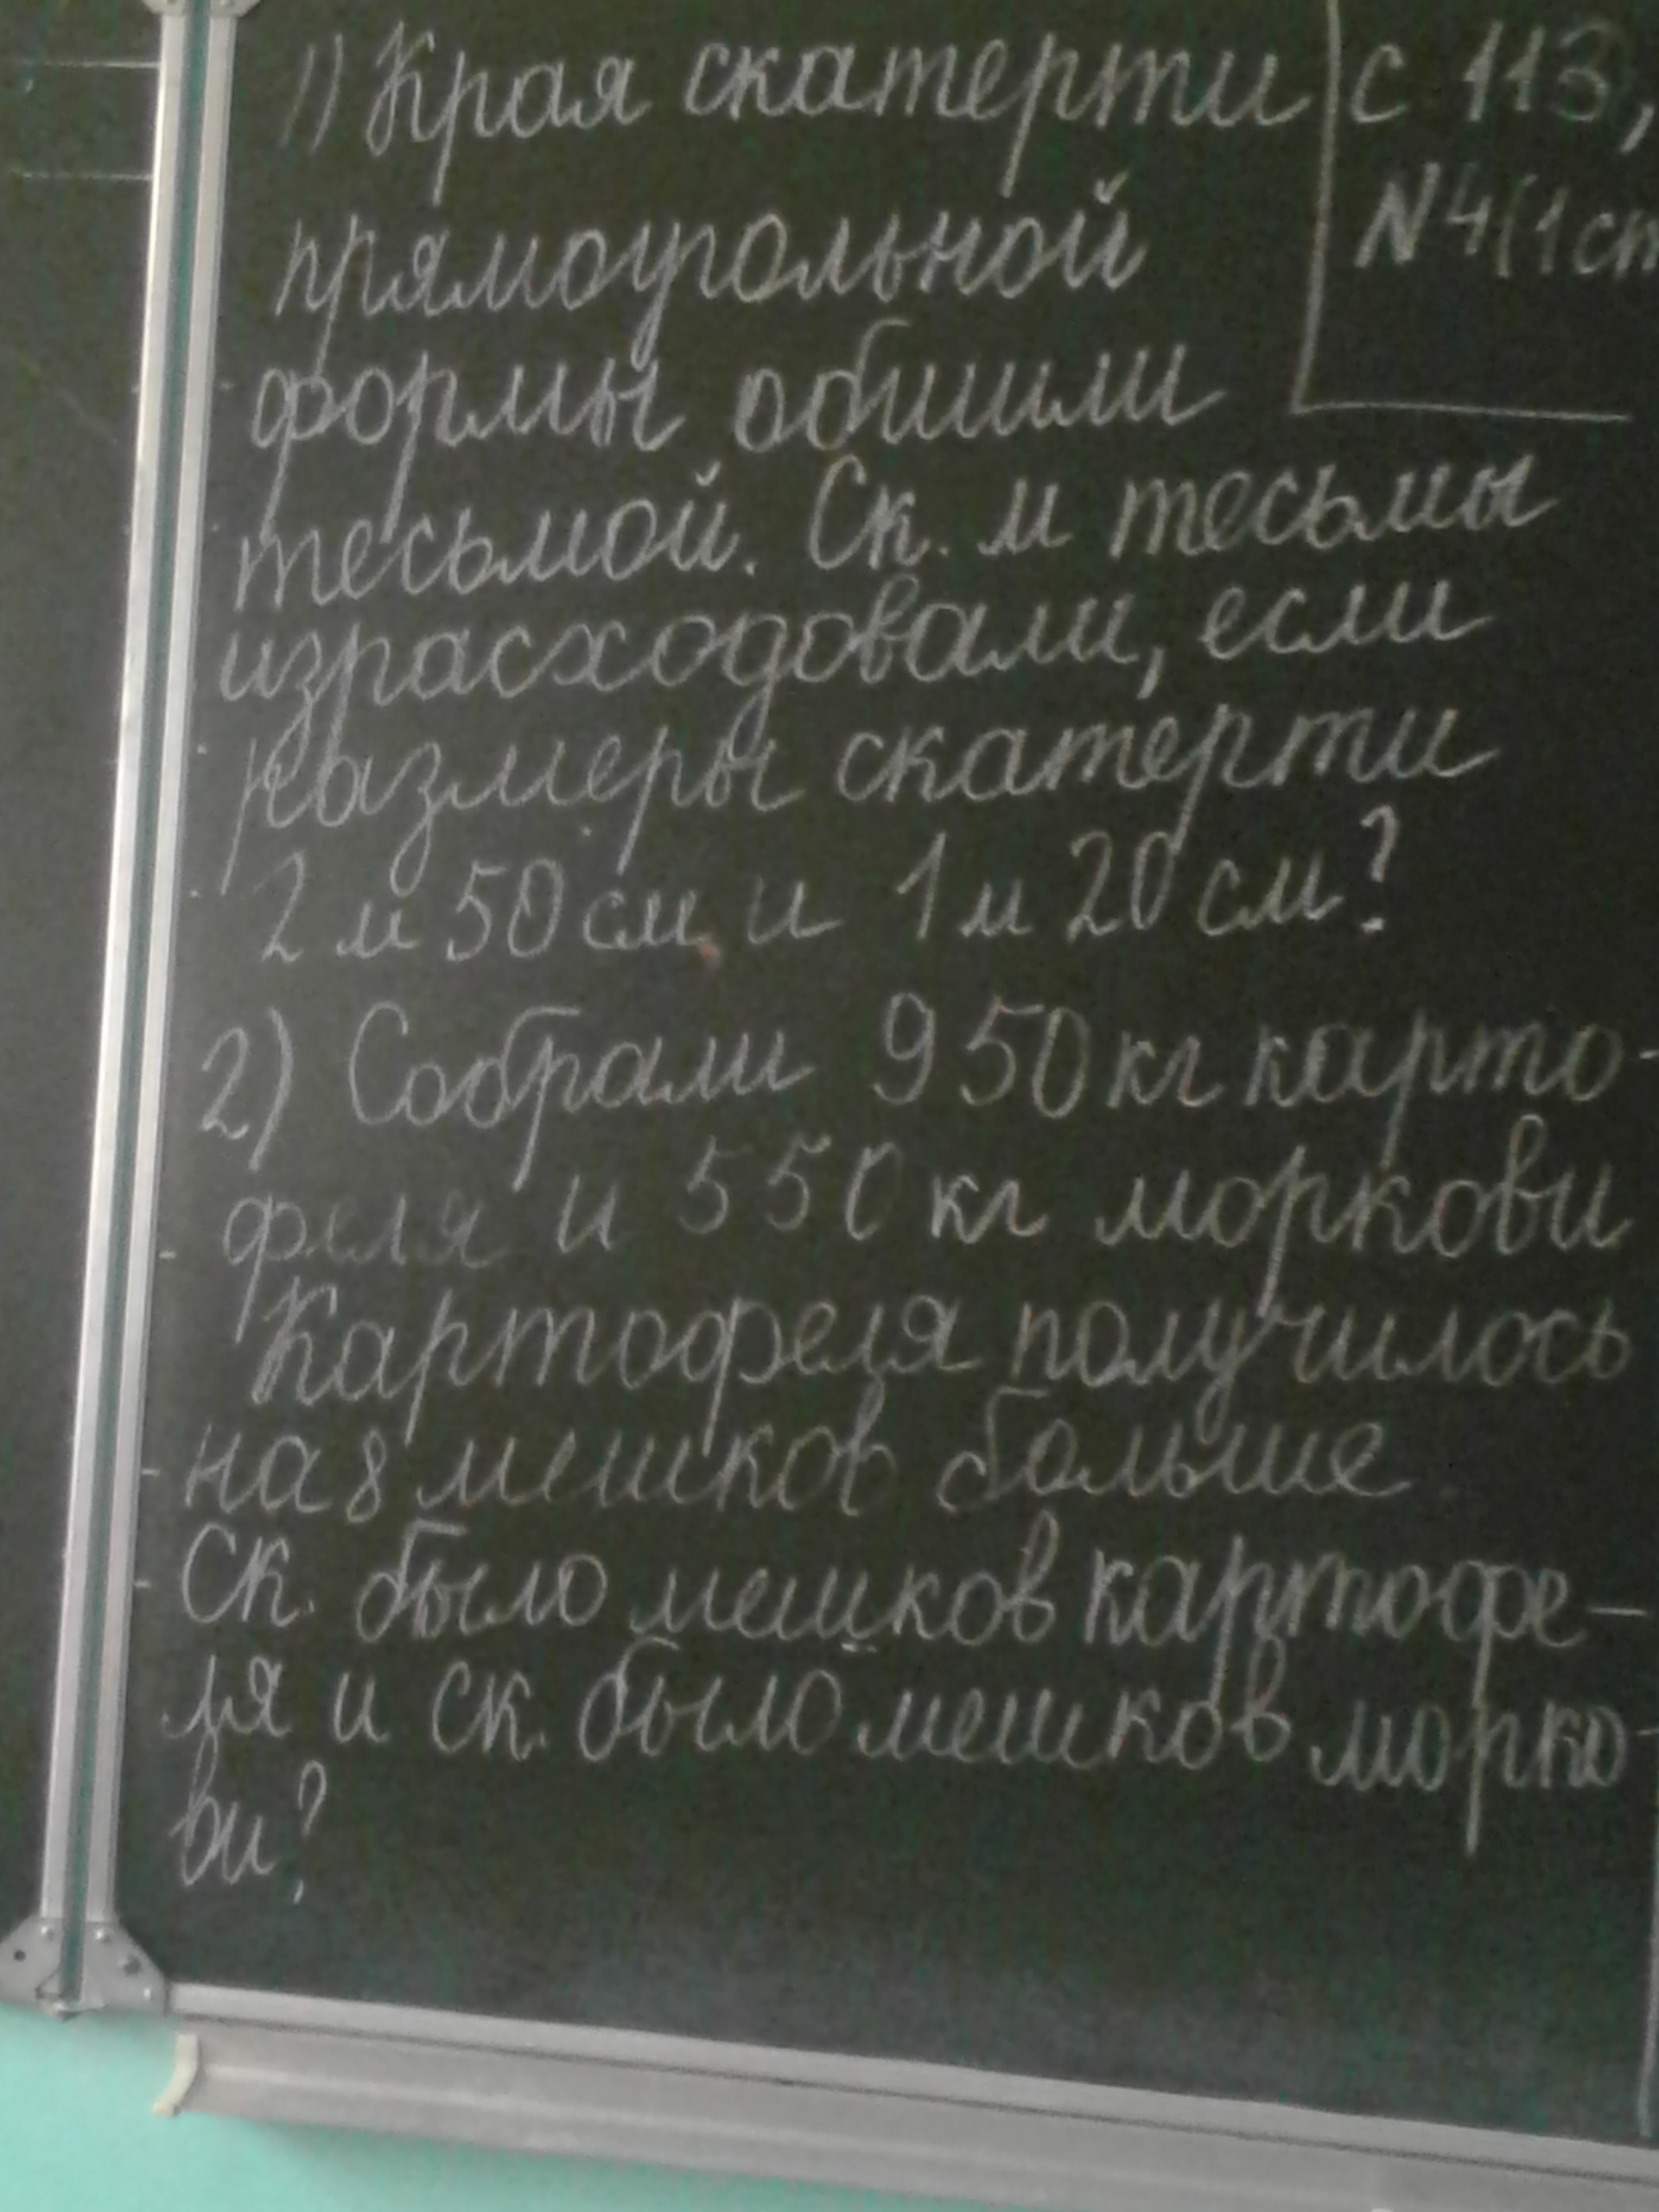 1) Края скатерти
прямоугольной
формы обшили
тесьмой. Ск. м тесьмы
израсходовали, если
размеры скатерти
2 м 50 см и 1 м 20 см?
2) Собрали 950 кг карто-
феля и 550 кг моркови
Картофеля получилось
на 8 мешков больше
Ск. было мешков картофе-
ля и ск. было мешков морко-
ви?
с 113,
N 4 (1 ст